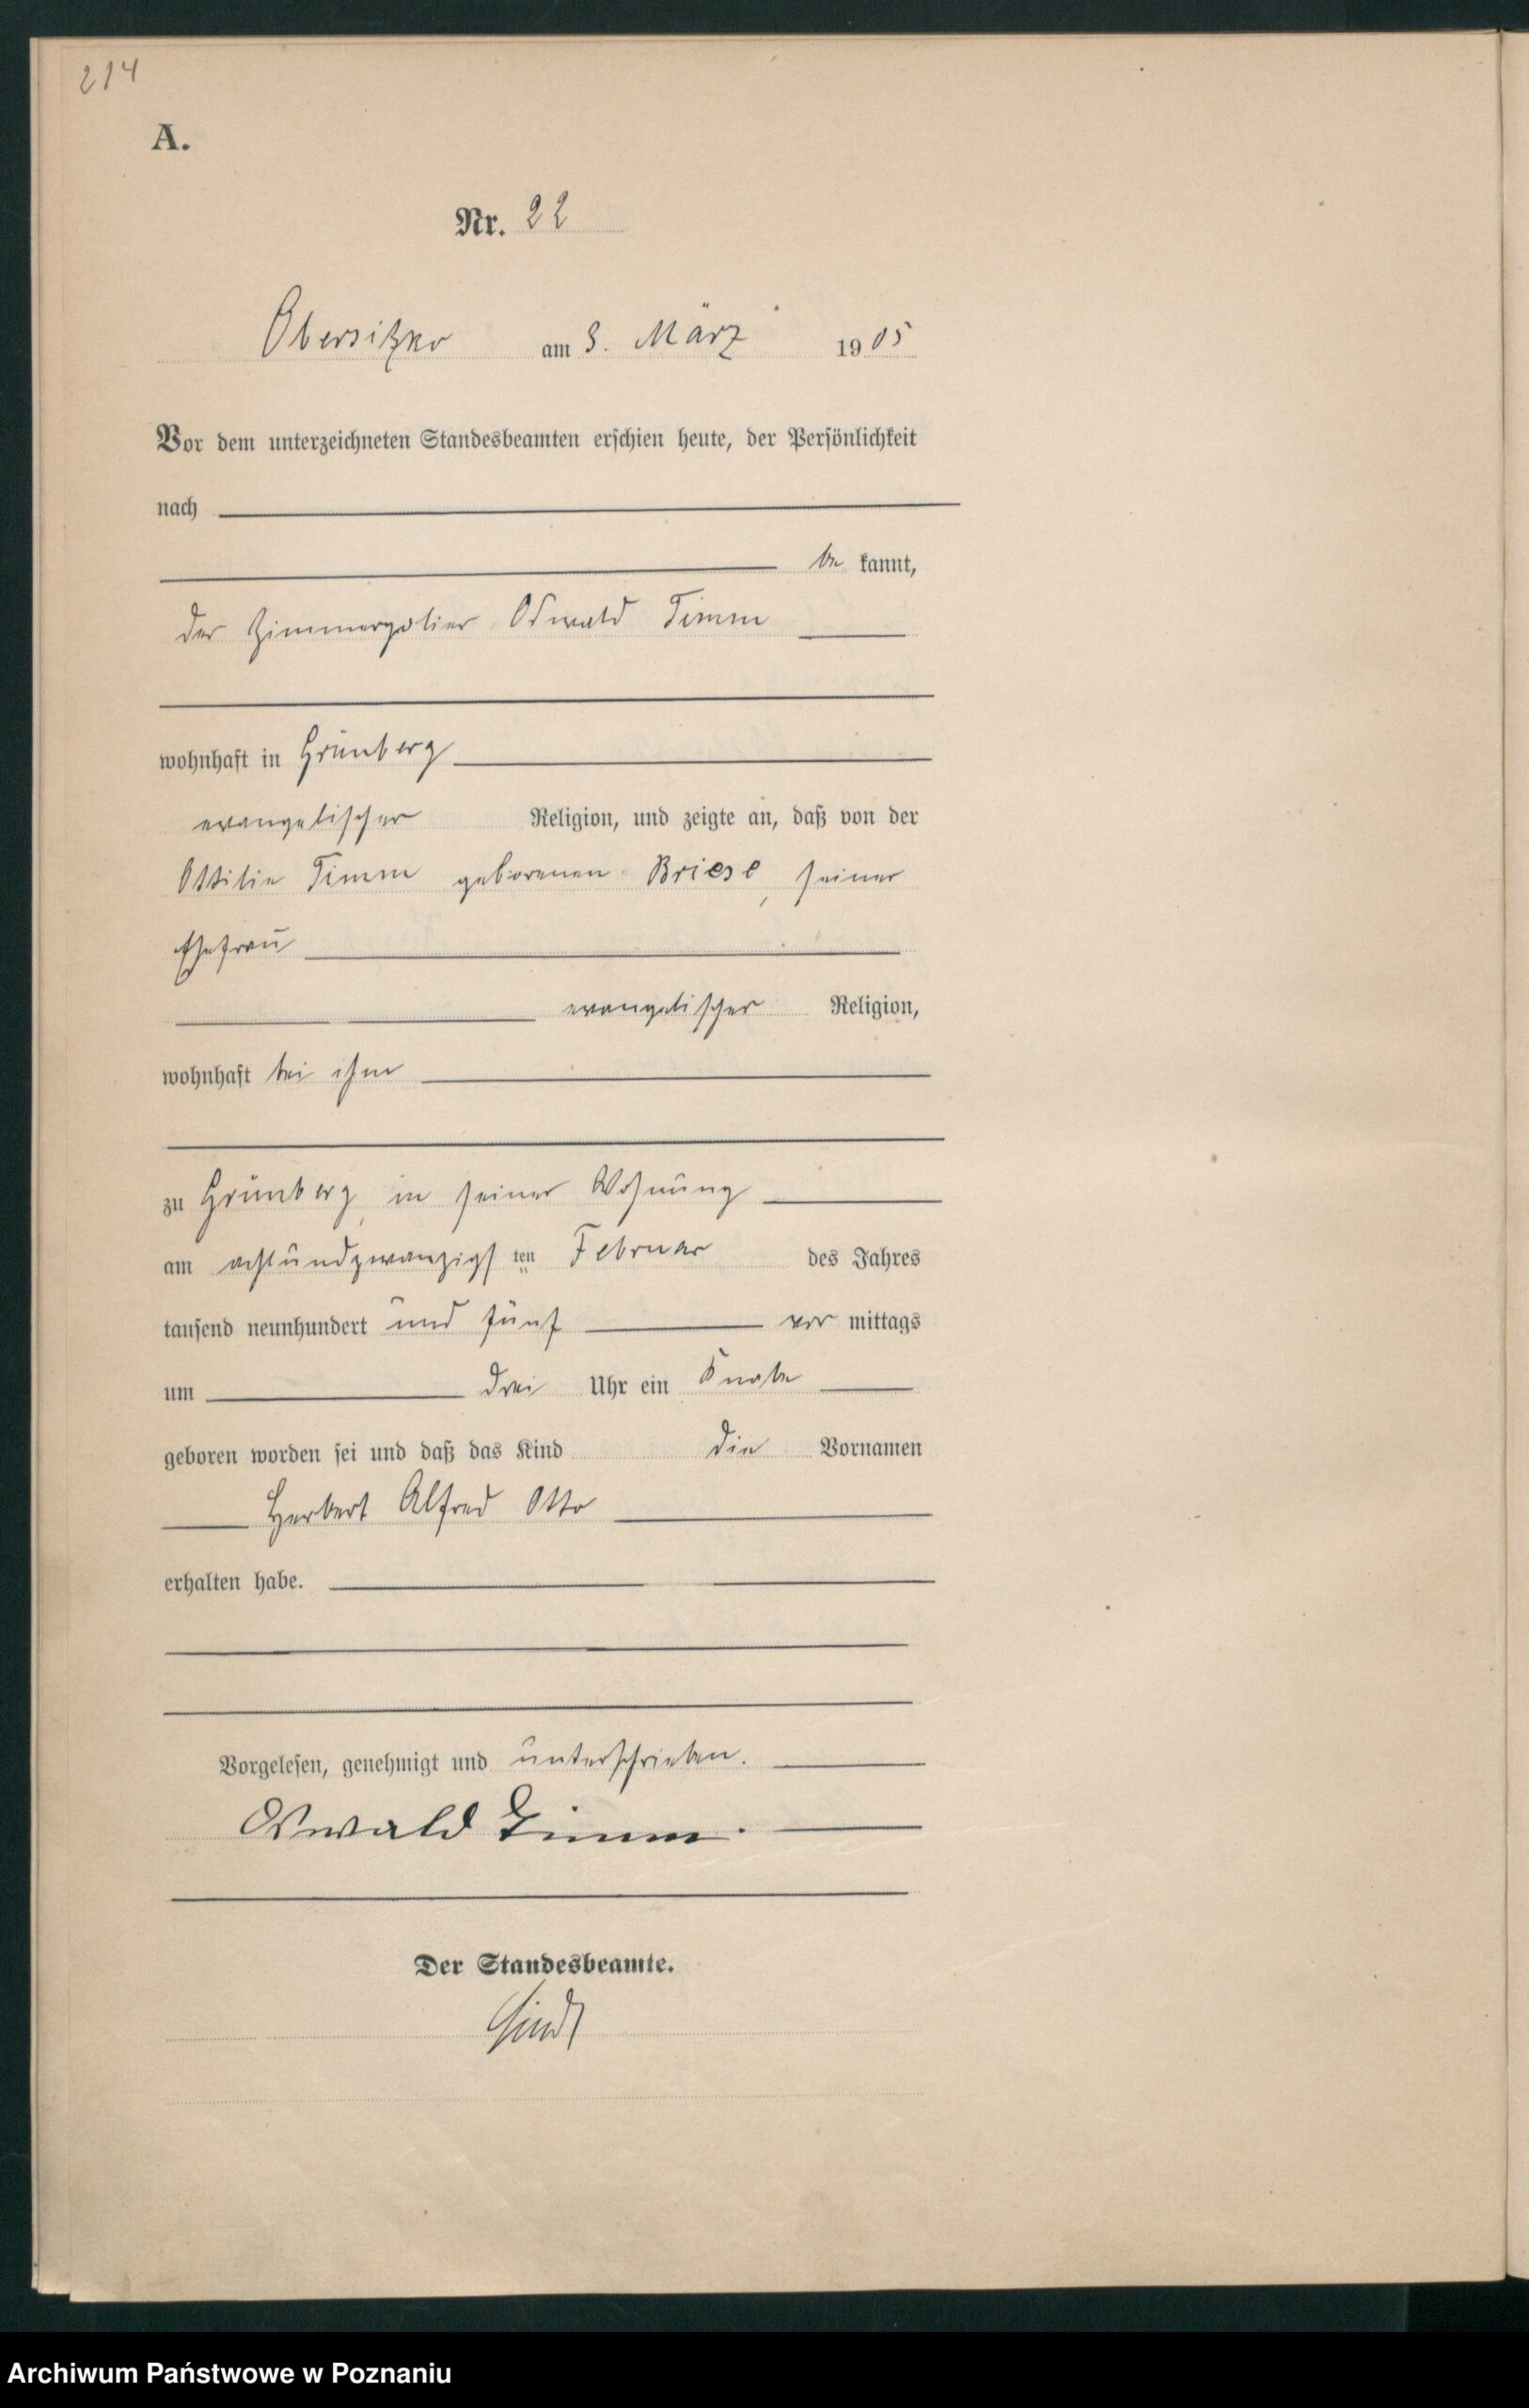 214
A.
Nr. 22
Obersitzko am 3. März 1905
Vor dem unterzeichneten Standesbeamten erschien heute, der Persönlichkeit
nach
be kannt,
der Zimmerpolier Oswald Timm
wohnhaft in Grünberg
evangelischer Religion, und zeigte an, daß von der
Ottilie Timm geborenen Briese, seiner
Ehefrau
evangelischer Religion,
wohnhaft bei ihm
zu Grünberg, in seiner Wohnung
am achtundzwanzigs ten Februar des Jahres
tausend neunhundert und fünf vor mittags
um drei Uhr ein Knabe
geboren worden sei und daß das Kind die Vornamen
Herbert Alfred Otto
erhalten habe.
Vorgelesen, genehmigt und unterschrieben.
Oswald Timm.
Der Standesbeamte.
Archiwum Państwowe w Poznaniu